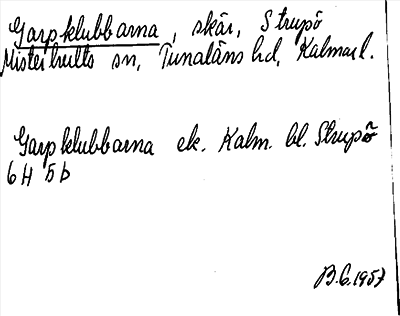 Garpklubbarna, skär, Strupö
Misterhults sn, Tunaläns hd, Kalmar l.
Garpklubbarna ek. Kalm. bl. Strupö
6H 5b
B.G. 1957